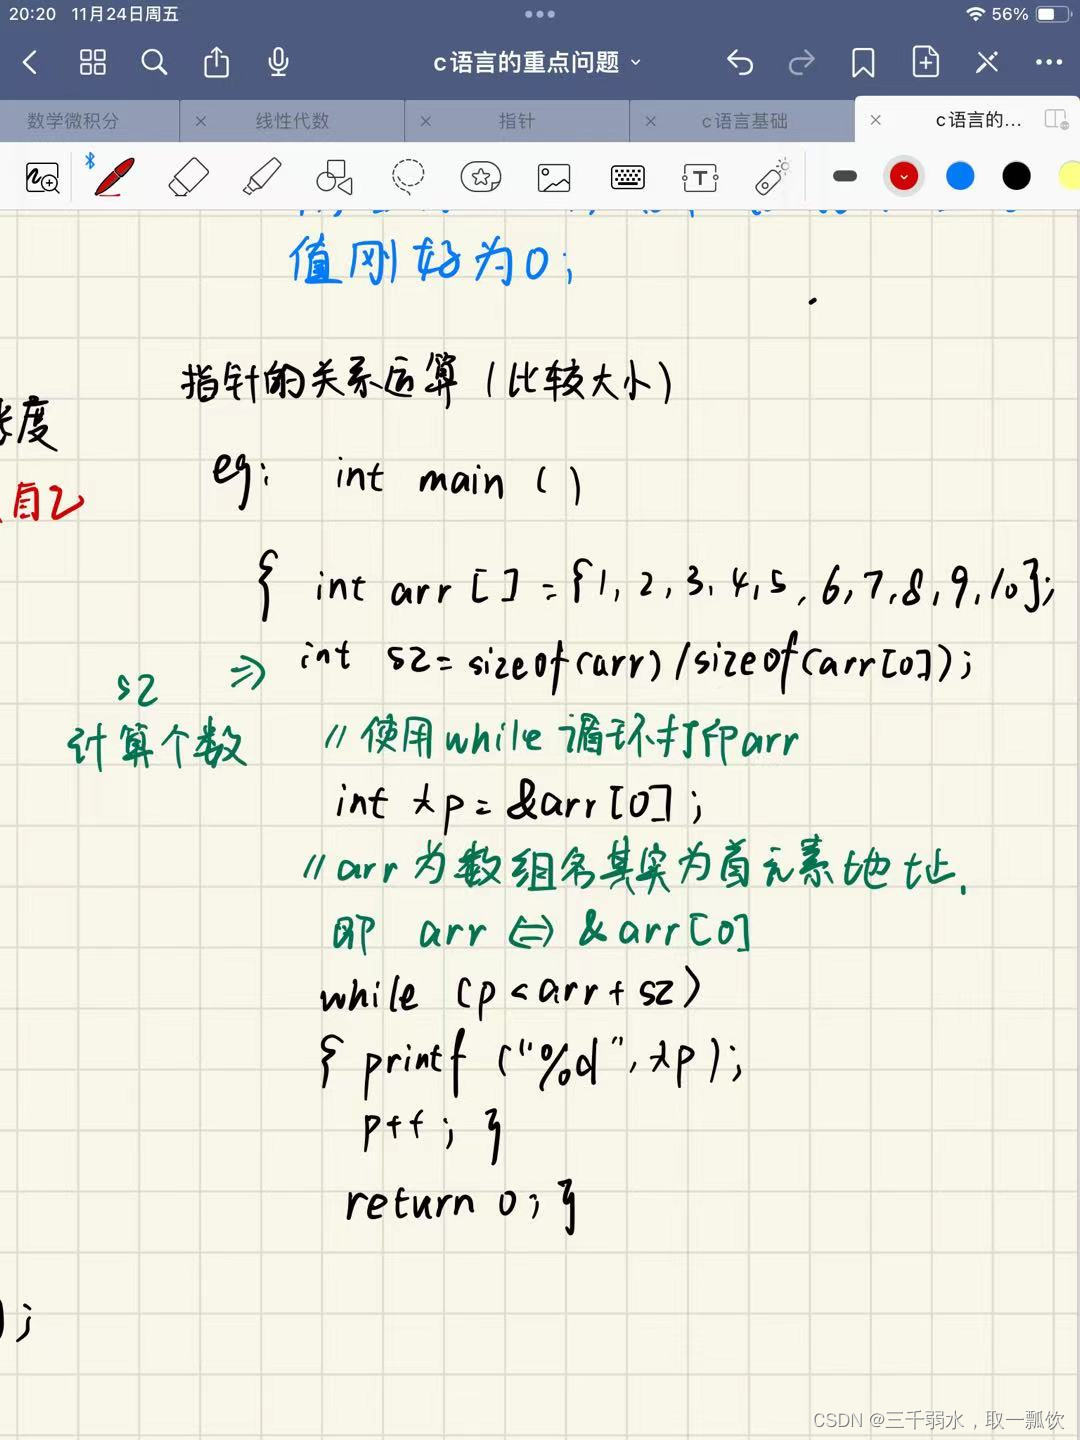 20:20 11月24日周五 56%
c语言的重点问题
数学微积分 线性代数 指针 c语言基础 c语言的...
值刚好为0;
指针的关系运算(比较大小)
度
自己
eg: int main ()
{ int arr [] = {1, 2, 3, 4, 5, 6, 7, 8, 9, 10};
⇒ int sz = sizeof(arr) / sizeof(arr[0]);
sz
计算个数
// 使用while循环打印arr
int *p = &arr[0];
// arr为数组名其实为首元素地址.
即 arr ⇔ &arr[0]
while (p < arr + sz)
{ printf ("%d", *p);
p++; }
return 0; }
);
CSDN @三千弱水，取一瓢饮